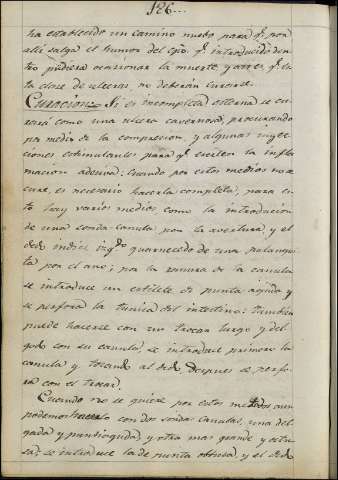 126...
ha establecido un camino nuebo para q.e por
alli salga el humor del q.e introducido den-
tro pudiera ocasionar la muerte y q.e es-
ta clase de ulceras, no deberán curarse.
Curacion: Si es incompleta esterna se cu-
rará como una ulcera cavernosa, procurando
por medio de la compresion, y algunas inyec-
ciones estimulantes para q.e esciten la infla-
macion adesiva: Cuando por estos medios no se
cure, es necesario hacerla completa, para es-
to hay varios medios, como la introducion
de una sonda canula por la avertura, y el
dedo indice izq.do guarnecido de una
por el ano; por la ranura de la canula
se introduce un estilete de punta aguda y
se perfora la tunica del intestino: tambien
puede hacerse con un trocar largo y del-
gado con su canula, se introduce primero la
canula y tocando al dedo despues se perfo-
ra con el trocar.
Cuando no se quiere por estos metodos aun
podemos hacerlo con dos sondas canulas, una del-
gada y puntiaguda, y otra mas grande y obtu-
sa, se introduce la de punta obtusa, y el dedo